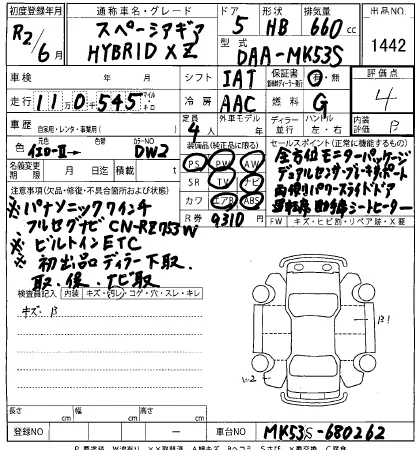 初度登録年月 通称車名・グレード ドア 形状 排気量 出品NO
R2/6月 スペーシアギア HYBRID XZ 5 HB 660cc 1442
型式 DAA-MK53S
車検 年 月 シフト IAT 保証書 有・無 評価点
走行 110,545 マイル キロ 冷房 AAC 燃料 G 4
車歴 自家用・レンタ・事業用( ) 定員 4人 外車モデル 年 ディーラー 並行 ハンドル 左・右 内装評価 B
色 元色 イエローⅡ→ カラーNO DW2
装備品(純正品に限る)
セールスポイント(正常に機能するもの)
名義変更期限 月 日迄 積載 t
PS PW AW
SR TV ナビ
カワ エアB ABS
R券 9310 円
全方位モニターパッケージ
デュアルセンサーブレーキサポート
両側パワースライドドア
運転席助手席シートヒーター
FW キズ・ヒビ割・リペア跡・X要
注意事項(欠品・修復・不具合箇所及び状態)
※パナソニック9インチ
フルセグナビ CN-RE753W
※ビルトインETC
※初出品ディーラー下取
取・保・ナビ取
検査員記入 内装 キズ・汚レ・コゲ・穴・スレ・キレ
キズ・B
B1
長さ cm 幅 cm 高さ cm
登録NO 車台NO MK53S-680262